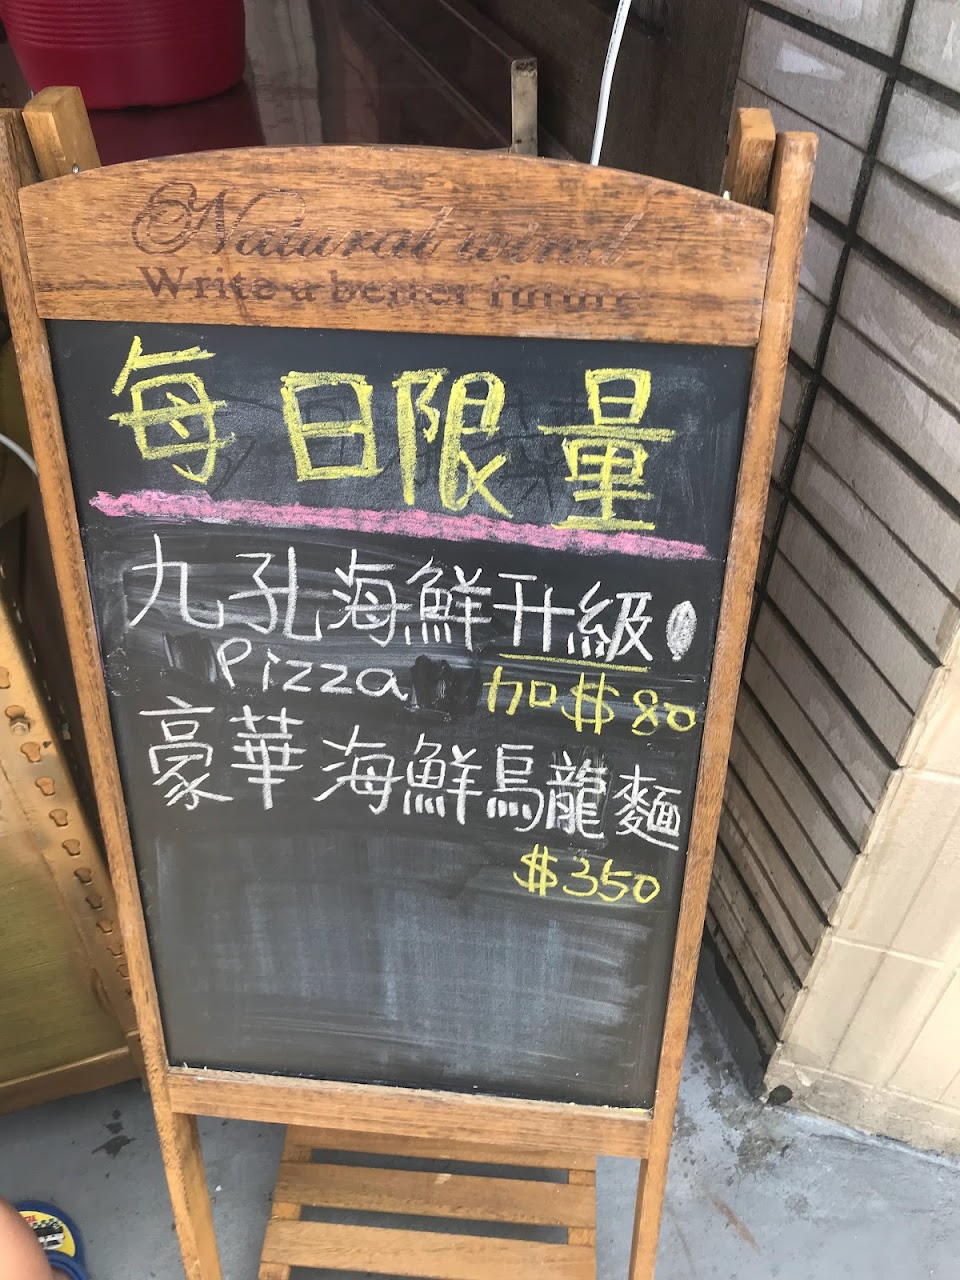 Natural wind
Write a better future
每日限量
九孔海鮮升級
Pizza 加$80
豪華海鮮烏龍麵
$350